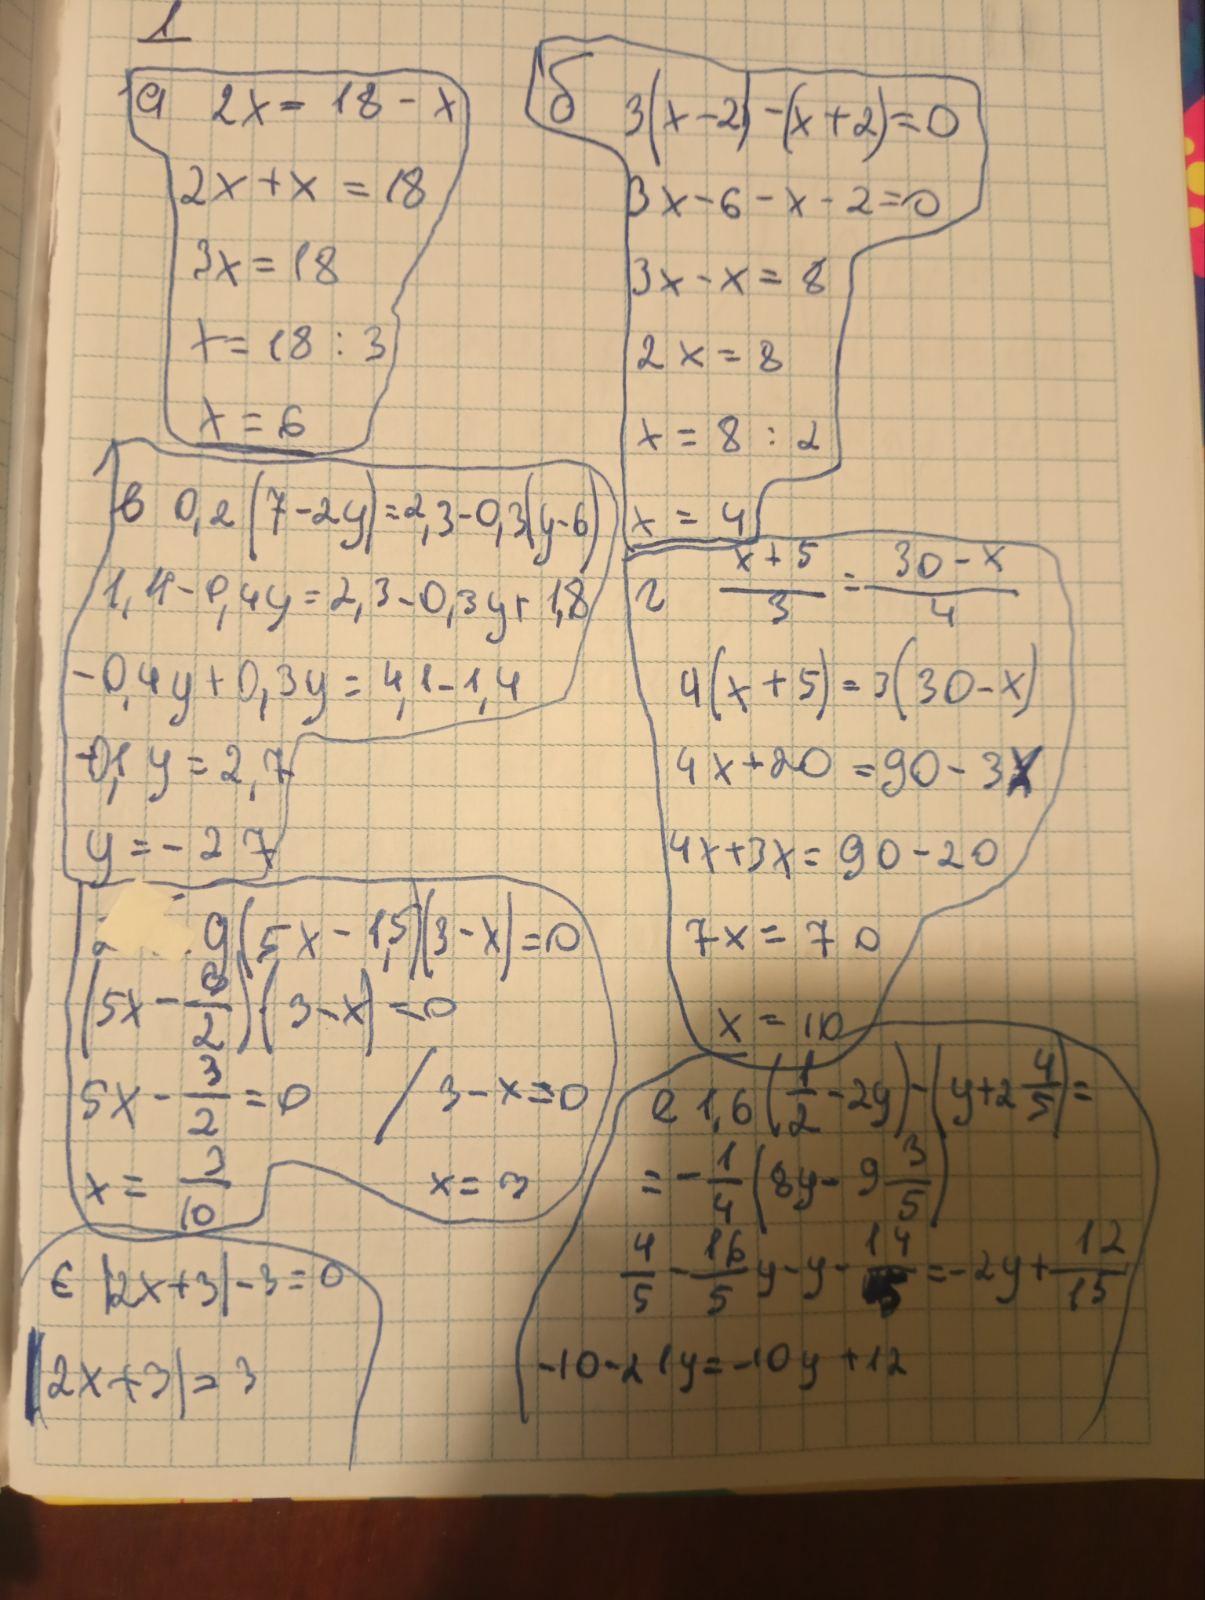 1
а 2x = 18 - x
2x + x = 18
3x = 18
x = 18 : 3
x = 6
б 3(x - 2) - (x + 2) = 0
3x - 6 - x - 2 = 0
3x - x = 8
2x = 8
x = 8 : 2
x = 4
в 0,2(7 - 2y) = 2,3 - 0,3(y - 6)
1,4 - 0,4y = 2,3 - 0,3y + 1,8
-0,4y + 0,3y = 4,1 - 1,4
-0,1y = 2,7
y = -27
г \frac{x + 5}{3} = \frac{30 - x}{4}
4(x + 5) = 3(30 - x)
4x + 20 = 90 - 3x
4x + 3x = 90 - 20
7x = 70
x = 10
(5x - 1,5)(3 - x) = 0
(5x - \frac{3}{2}) · (3 - x) = 0
5x - \frac{3}{2} = 0 / 3 - x = 0
x = \frac{3}{10} x = 3
е 1,6(\frac{1}{2} - 2y) - (y + 2\frac{4}{5}) =
= -\frac{1}{4}(8y - 9\frac{3}{5})
\frac{4}{5} - \frac{16}{5}y - y - \frac{14}{5} = -2y + \frac{12}{15}
-10 - 21y = -10y + 12
є |2x + 3| - 3 = 0
|2x + 3| = 3